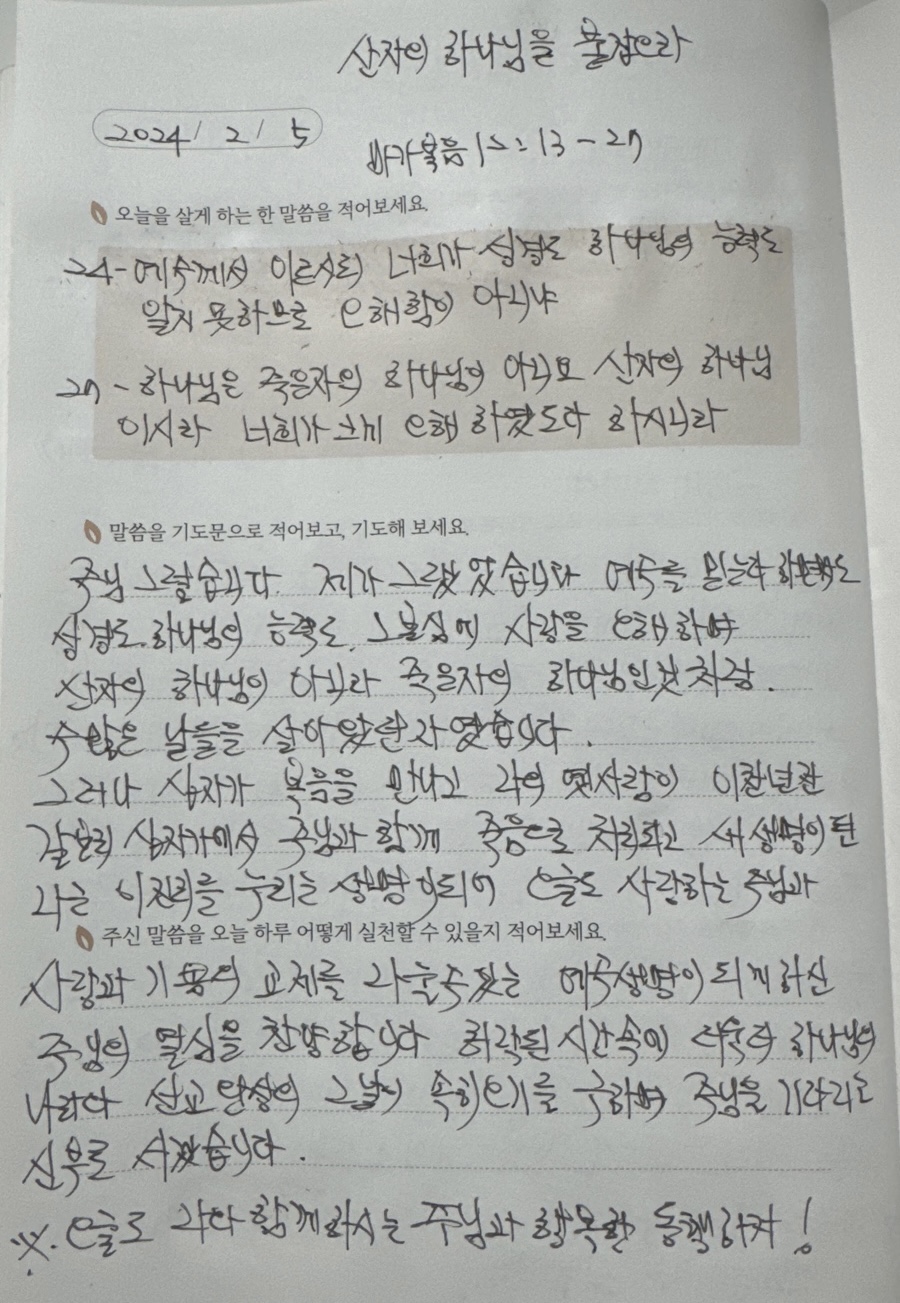 산자의 하나님을 붙잡으라
2024 / 2 / 5
마가복음 12 : 13 - 27
오늘을 살게 하는 한 말씀을 적어보세요.
24 - 예수께서 이르시되 너희가 성경도 하나님의 능력도
알지 못하므로 오해함이 아니냐
27 - 하나님은 죽은자의 하나님이 아니요 산자의 하나님
이시라 너희가 크게 오해 하였도다 하시니라
말씀을 기도문으로 적어보고, 기도해 보세요.
주님 그렇습니다. 제가 그랬었습니다 예수를 믿는다 하면서도
성경도 하나님의 능력도 그분심에 사랑을 오해하여
산자의 하나님이 아니라 죽은자의 하나님인것 처럼.
수많은 날들을 살아왔던 자 였습니다.
그러나 십자가 복음을 만나고 나의 옛사람이 이천년전
갈보리 십자가에서 주님과 함께 죽음으로 처리되고 새생명이 된
나는 이 진리를 누리는 생명이되어 오늘도 사랑하는 주님과
주신 말씀을 오늘 하루 어떻게 실천할 수 있을지 적어보세요.
사랑과 기쁨의 교제를 나눌수 있는 예수생명이 되게하신
주님의 열심을 찬양합니다 허락된 시간속에 더욱더 하나님의
나라와 선교완성의 그날이 속히오기를 구하며 주님을 기다리는
신부로 서겠습니다.
※. 오늘도 나와 함께하시는 주님과 행복한 동행하자!